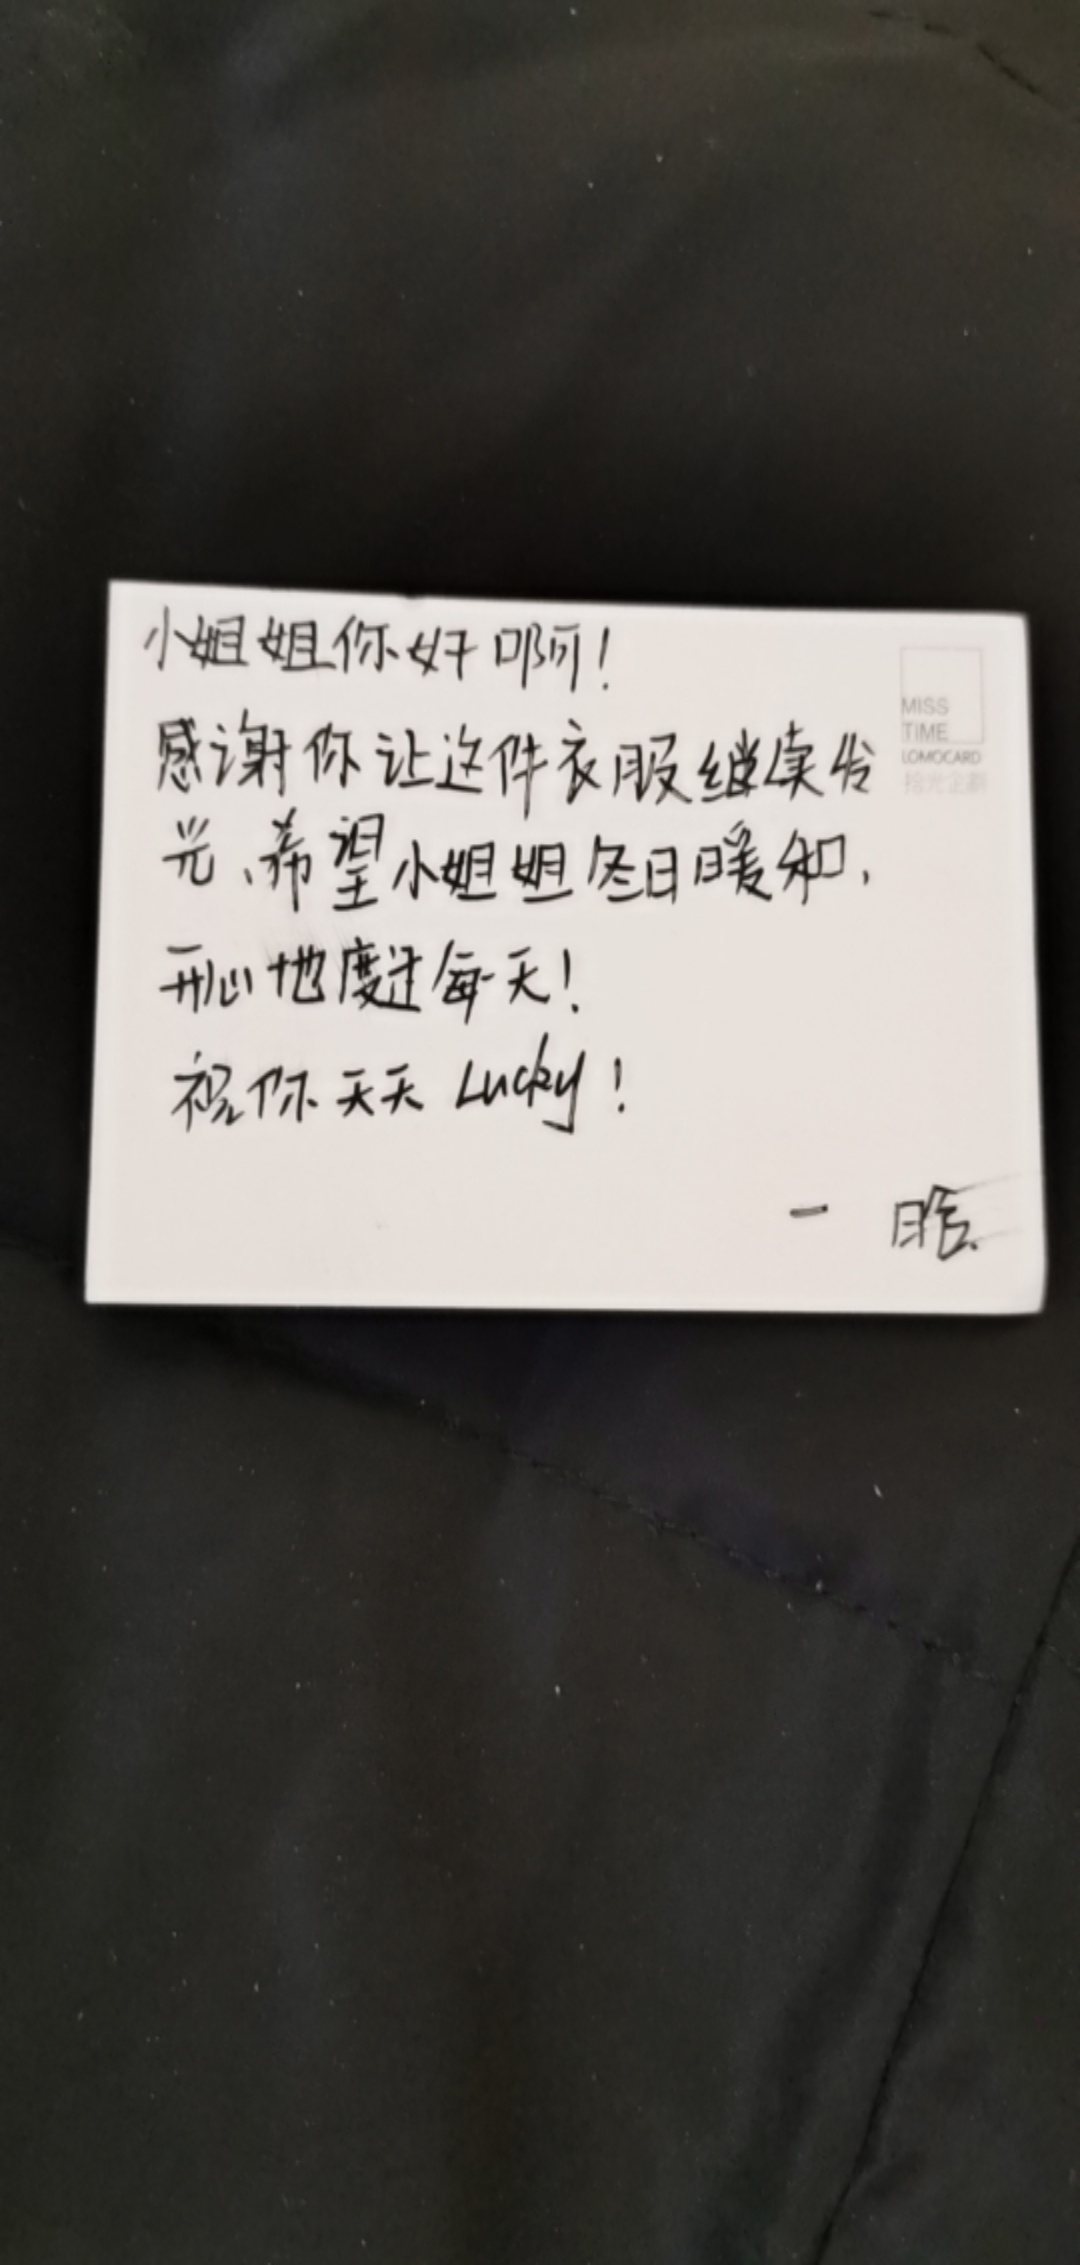 小姐姐你好啊!
感谢你让这件衣服继续发
光、希望小姐姐冬日暖和,
开心地度过每一天!
祝你天天Lucky!
一 晗
MISS
TIME
LOMOCARD
拾光企劃